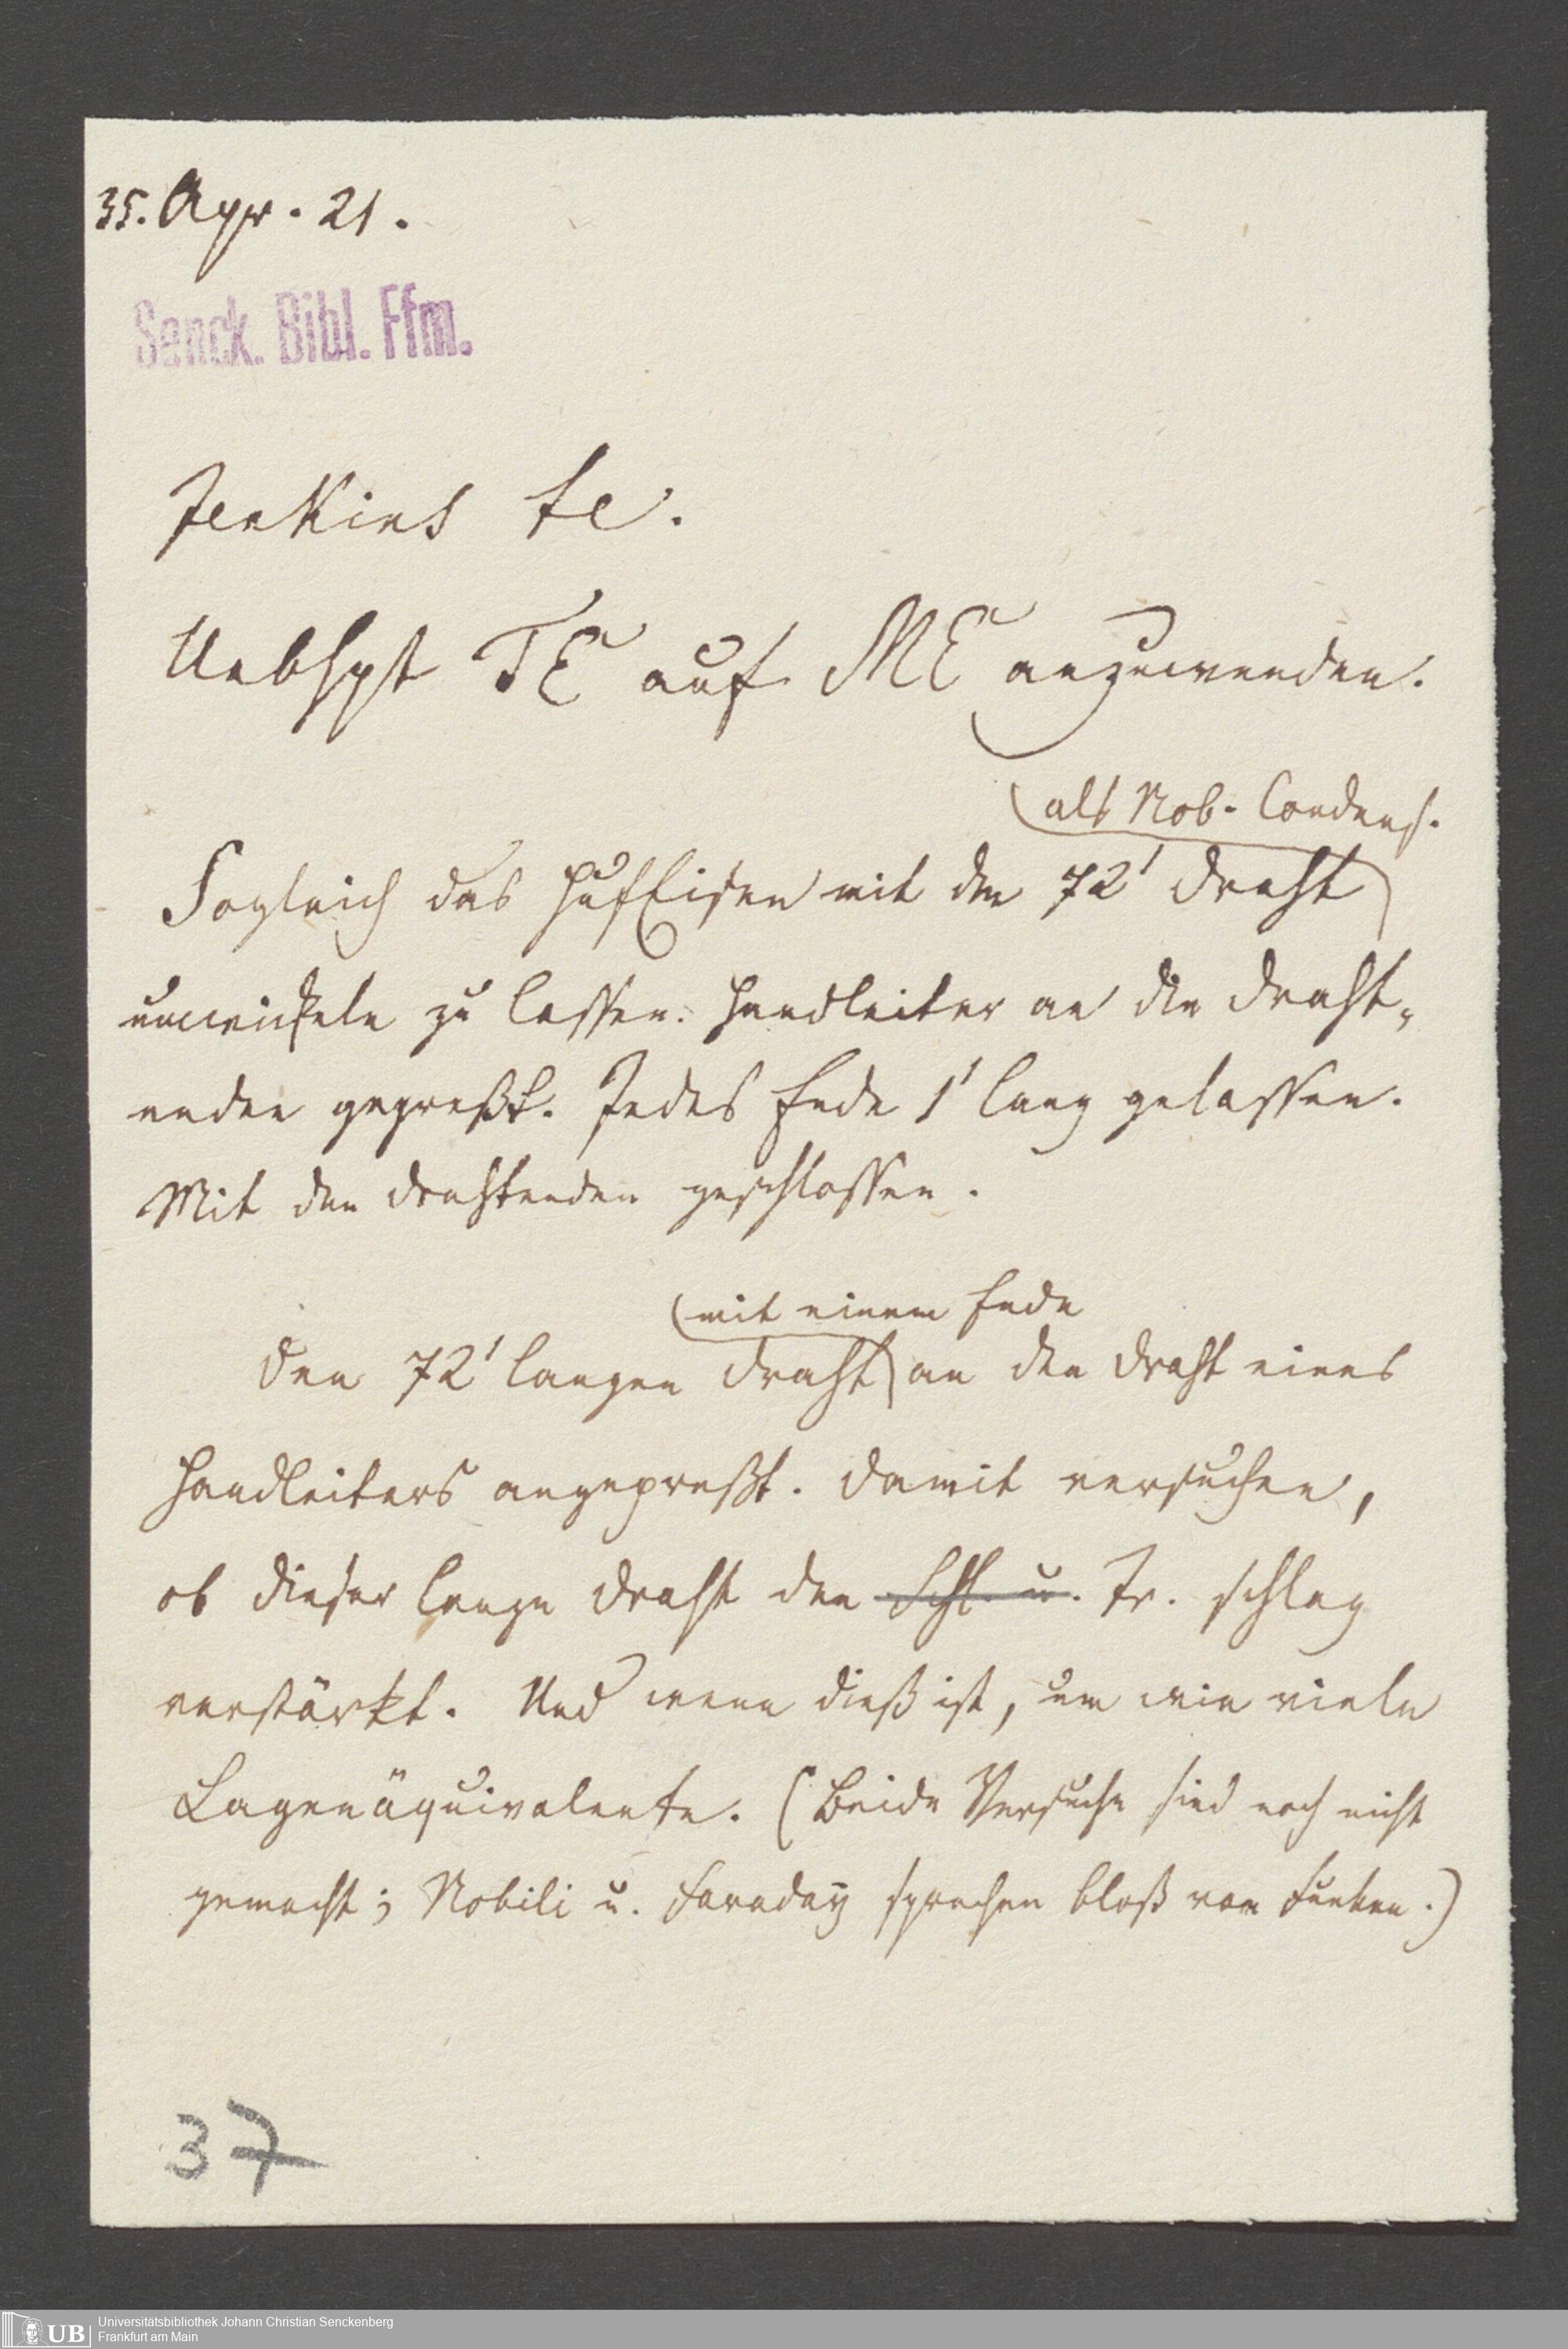 35. Apr. 21.
Senck. Bibl. Ffm.
Jenkins Ee.
Uebhpt TE auf ME anzuwenden.
als Nob. Condens.
Sogleich das HufEisen mit dem 72' Draht
umwickeln zu lassen. Handleiter an die Draht„
enden gepreßt. Jedes Ende 1' lang gelassen.
Mit den Drahtenden geschlossen.
mit einem Ende
Den 72' langen Draht an den Draht eines
Handleiters angepreßt. Damit versuchen,
ob dieser lange Draht den Schl. u. Tr. schlag
verstärkt. Und wenn dieß ist, um wie viele
Lagenäquivalente. (Beide Versuche sind noch nicht
gemacht; Nobili u. Faraday sprechen bloß von Funken.)
37
UB
Universitätsbibliothek Johann Christian Senckenberg
Frankfurt am Main